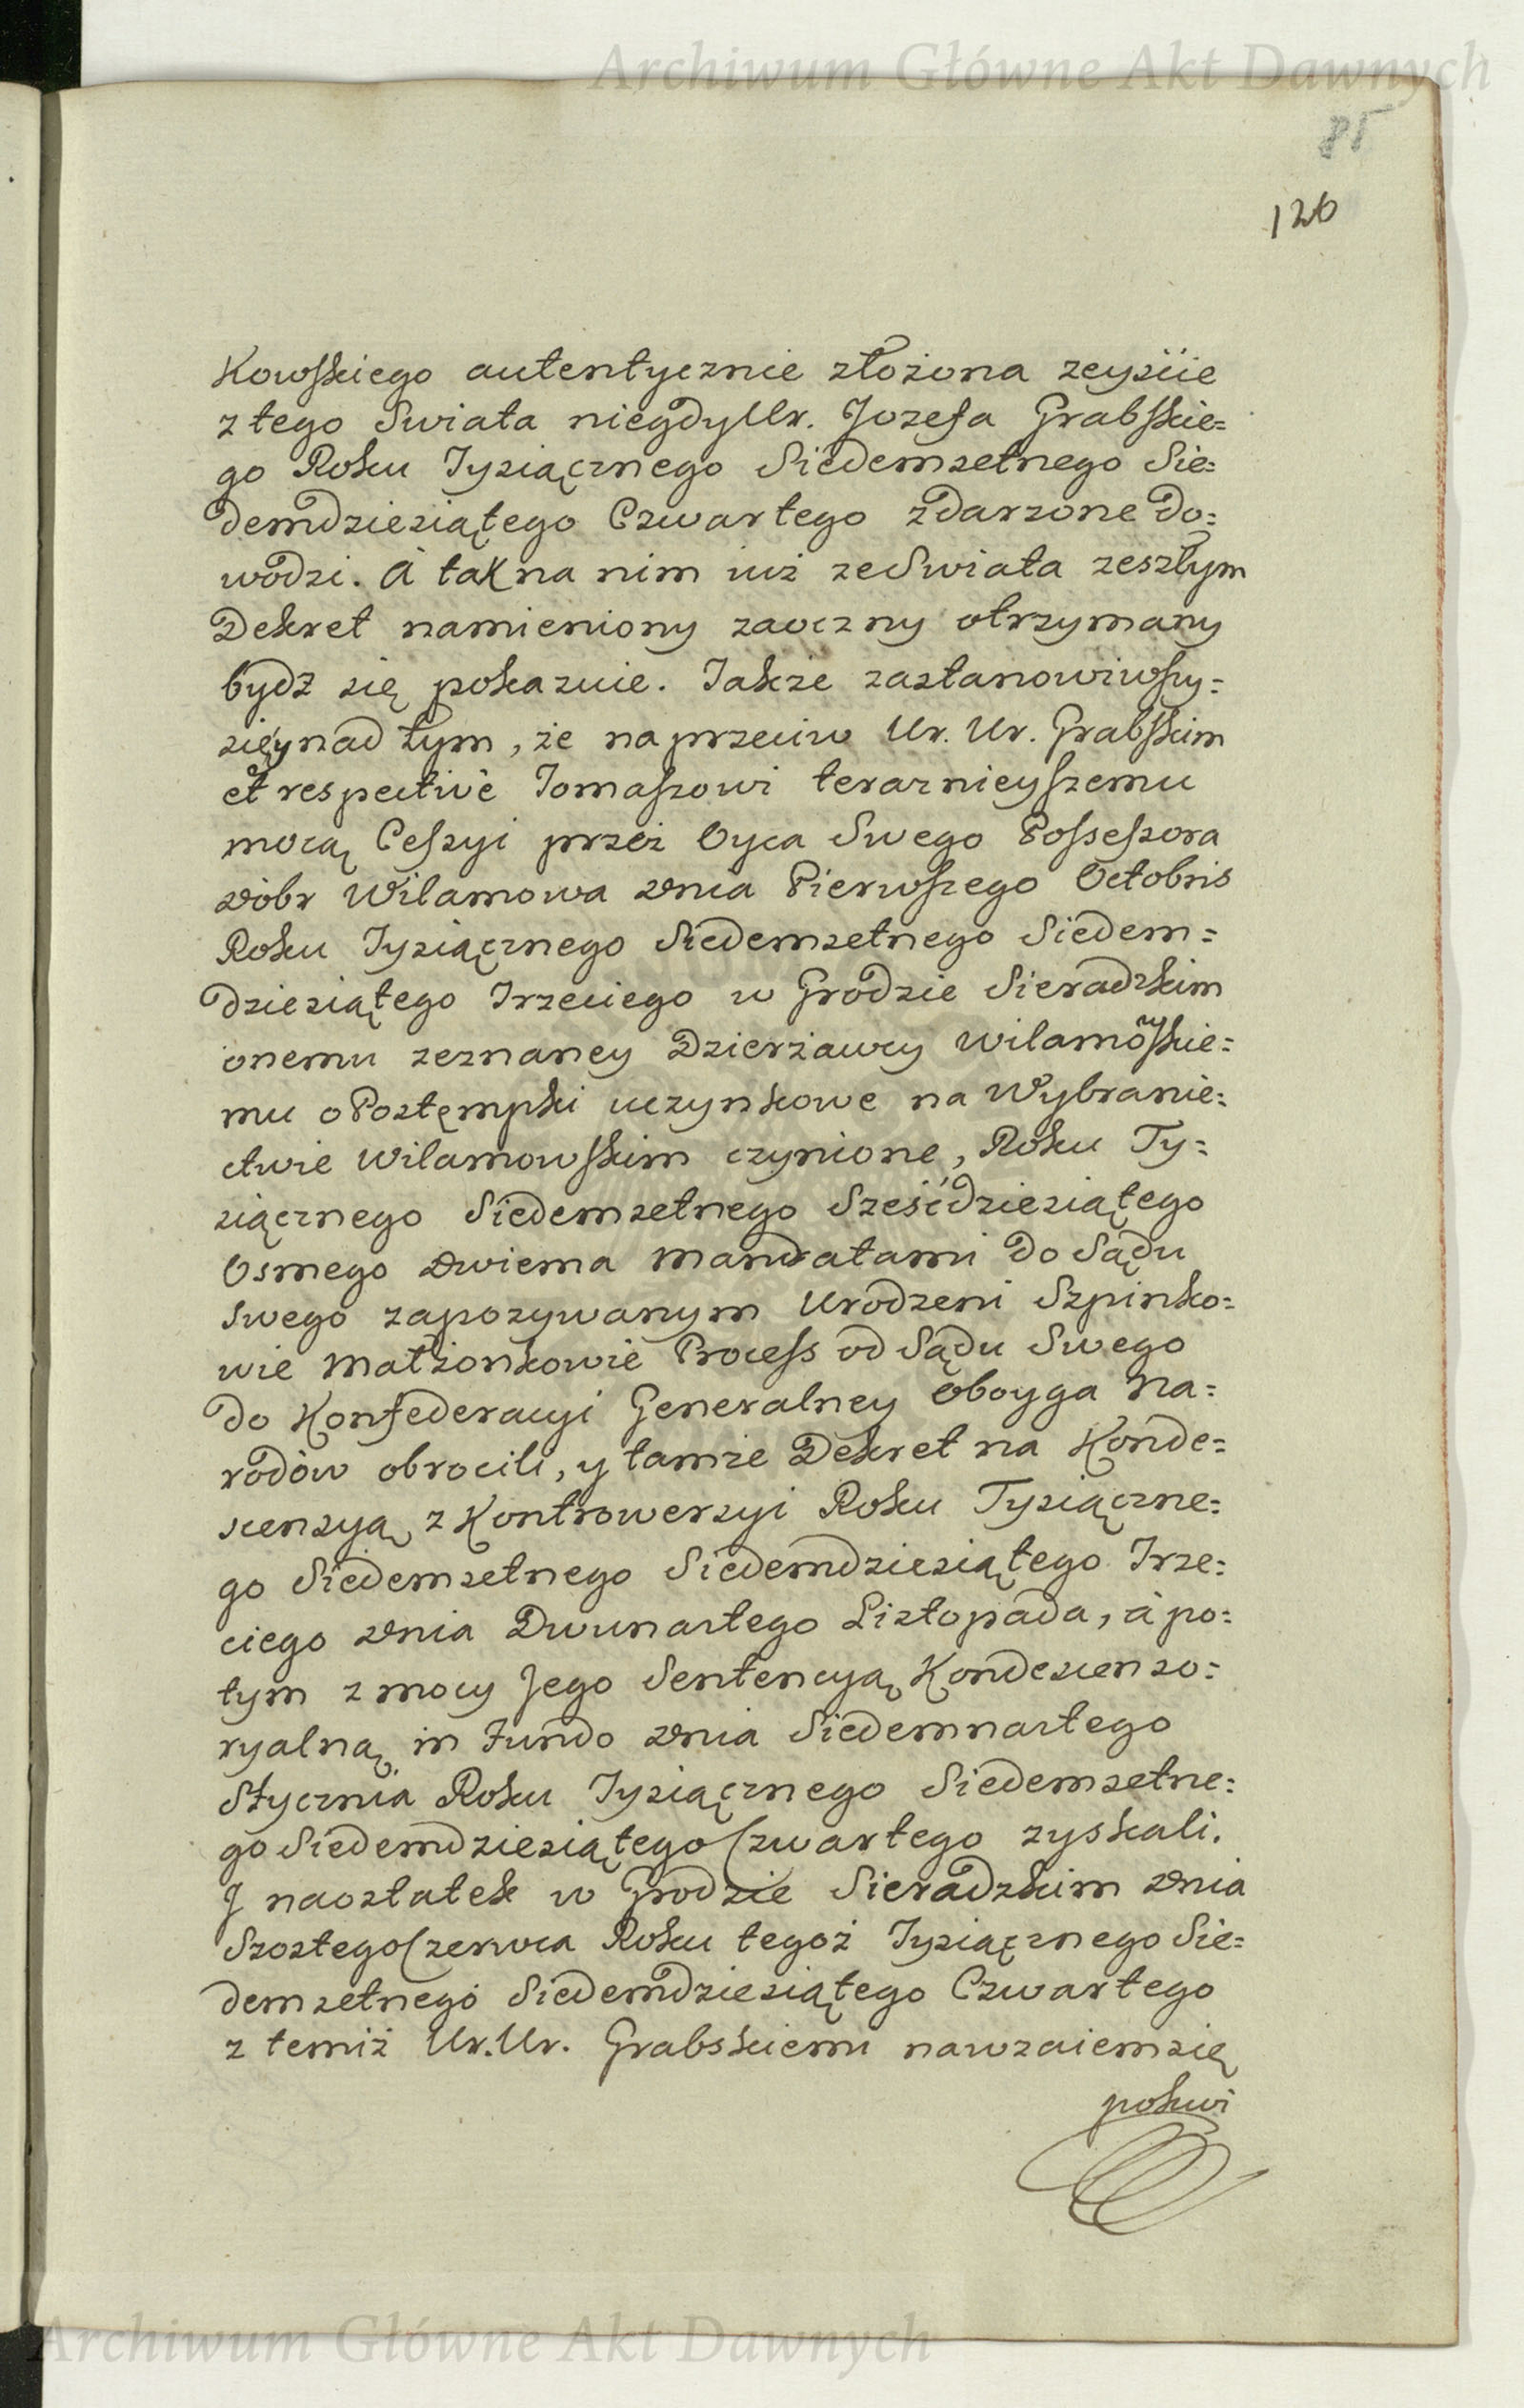 Archiwum Główne Akt Dawnych
85
126
Kowskiego autentycznie złożona zeyście
z tego Swiata niegdy Ur. Jozefa Grabskie=
go Roku Tysiącznego Siedemsetnego Sie=
demdziesiątego Czwartego zdarzone do=
wodzi. à tak na nim iuż ze Swiata zeszłym
Dekret namieniony zaoczny otrzymany
bydz się pokazuie. Jakże zastanowiwszy=
się y nad tym, że naprzeciw Ur. Ur. Grabskim
et respectivè Tomaszowi teraznieyszemu
mocą Cessyi przez Oyca Swego Possessora
dòbr Wilamowa dnia Pierwszego Octobris
Roku Tysiącznego Siedemsetnego Siedem=
dziesiątego Trzeciego w Grodzie Sieradzkim
onemu zeznaney Dzierżawcy Wilamowskie=
mu o Postęmpki uczynkowe na Wybranie=
ctwie Wilamowskim czynione, Roku Ty=
siącznego Siedemsetnego Sześćdziesiątego
Osmego dwiema Mandatami do Sądu
swego zapozywanym Urodzeni Szpinko=
wie Małżonkowie Process od Sądu Swego
do Konfederacyi Generalney Oboyga Na=
rodòw obrocili, y tamże Dekret na Konde=
scensyą z Kontrowersyi Roku Tysiączne=
go Siedemsetnego Siedemdziesiątego Trze=
ciego dnia Dwunastego Listopada, à po=
tym z mocy Jego Sentencyą Kondescenso=
ryalną in Fundo dnia Siedemnastego
Stycznia Roku Tysiącznego Siedemsetne=
go Siedemdziesiątego Czwartego zyskali.
J naostatek w Grodzie Sieradzkim dnia
Szostego Czerwca Roku tegoż Tysiącznego Sie=
demsetnego Siedemdziesiątego Czwartego
z temiż Ur. Ur. Grabskiemi nawzaiem się
pokwi
Archiwum Główne Akt Dawnych